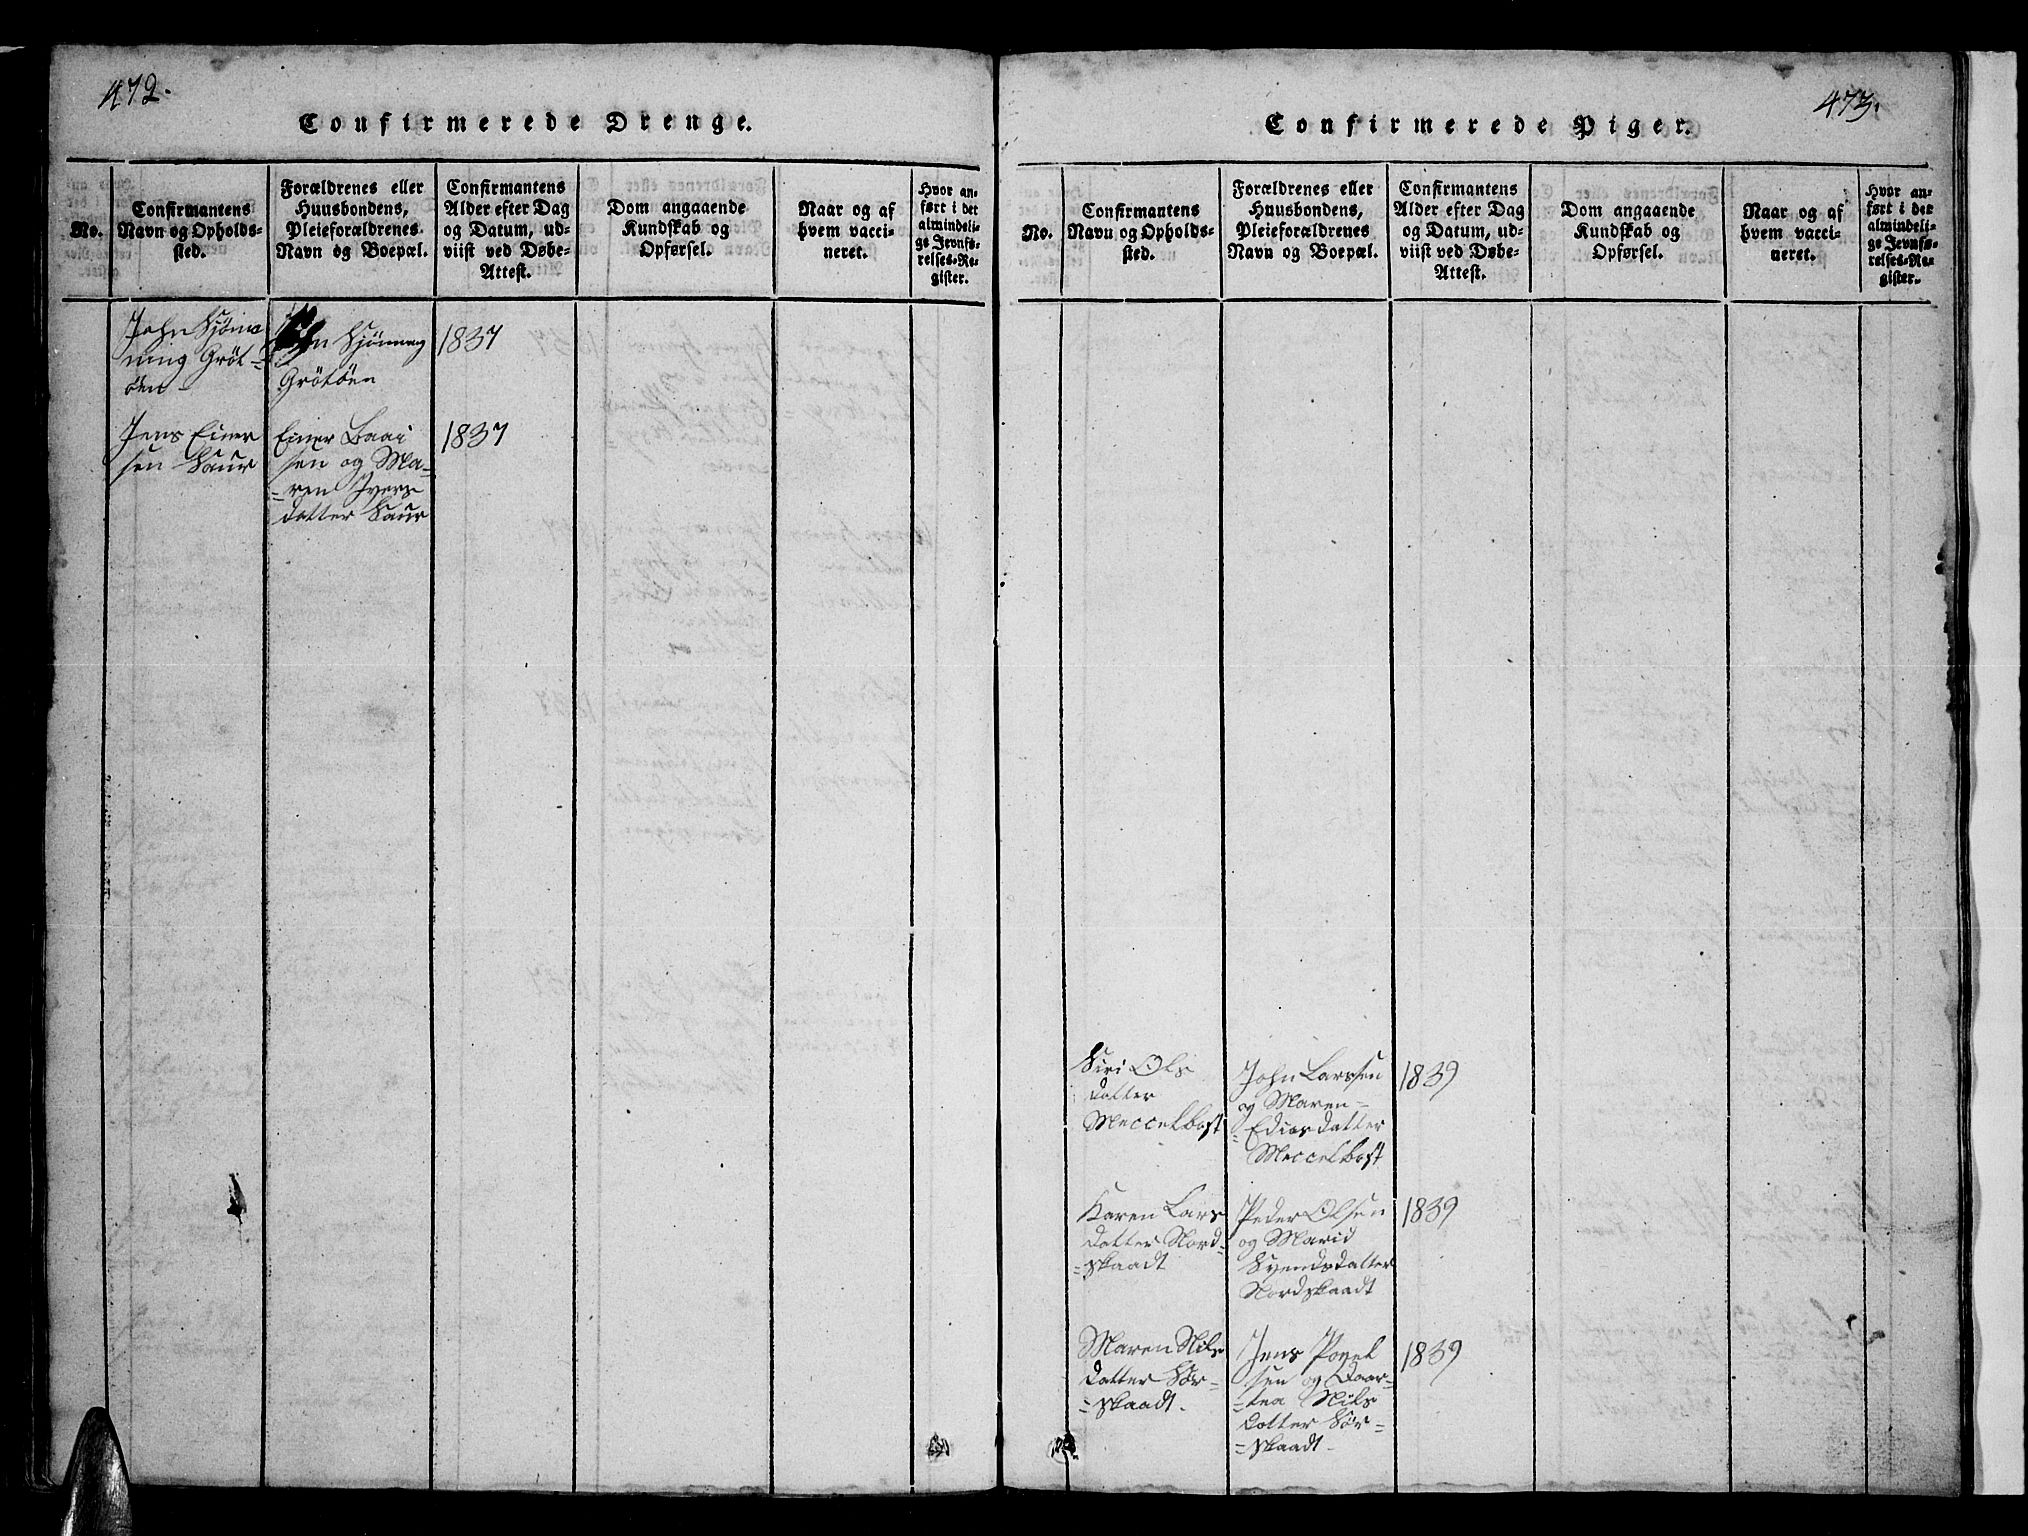 472.
Confirmerede Drenge.
No.
Confirmantens
Navn og Opholds-
sted.
Forældrenes eller
Huusbondens,
Pleieforældrenes
Navn og Boepæl.
Confirmantens
Alder efter Dag
og Datum, ud-
viist ved Døbe-
Attest.
Dom angaaende
Kundskab og
Opførsel.
Naar og af
hvem vacci-
neret.
Hvor an-
ført i det
almindeli-
ge Jevnfø-
relses-Re-
gister.
John Hjön
ning Gröt-
öen
Hjönning
Grötöen
1837
Jens Einer
sen Saur
Einer Baai
sen og Ma-
ren Ivers
datter Saur
1837
473.
Confirmerede Piger.
No.
Confirmantens
Navn og Opholds-
sted.
Forældrenes eller
Huusbondens,
Pleieforældrenes
Navn og Boepæl.
Confirmantens
Alder efter Dag
og Datum, ud-
viist ved Døbe-
Attest.
Dom angaaende
Kundskab og
Opførsel.
Naar og af
hvem vacci-
neret.
Hvor an-
ført i det
almindeli-
ge Jevnfø-
relses-Re-
gister.
Siri Ols
datter
Meccelbost
John Larssen
og Maren
Ediasdatter
Meccelbost
1839
Karen Lars
datter Nord-
skaadt
Peder Olsen
og Marid
Svendsdatter
Nordskaadt
1839
Maren Nils
datter Sør-
skaadt.
Jens Povel
sen og Daar-
tea Nils
datter Sør-
skaadt
1839